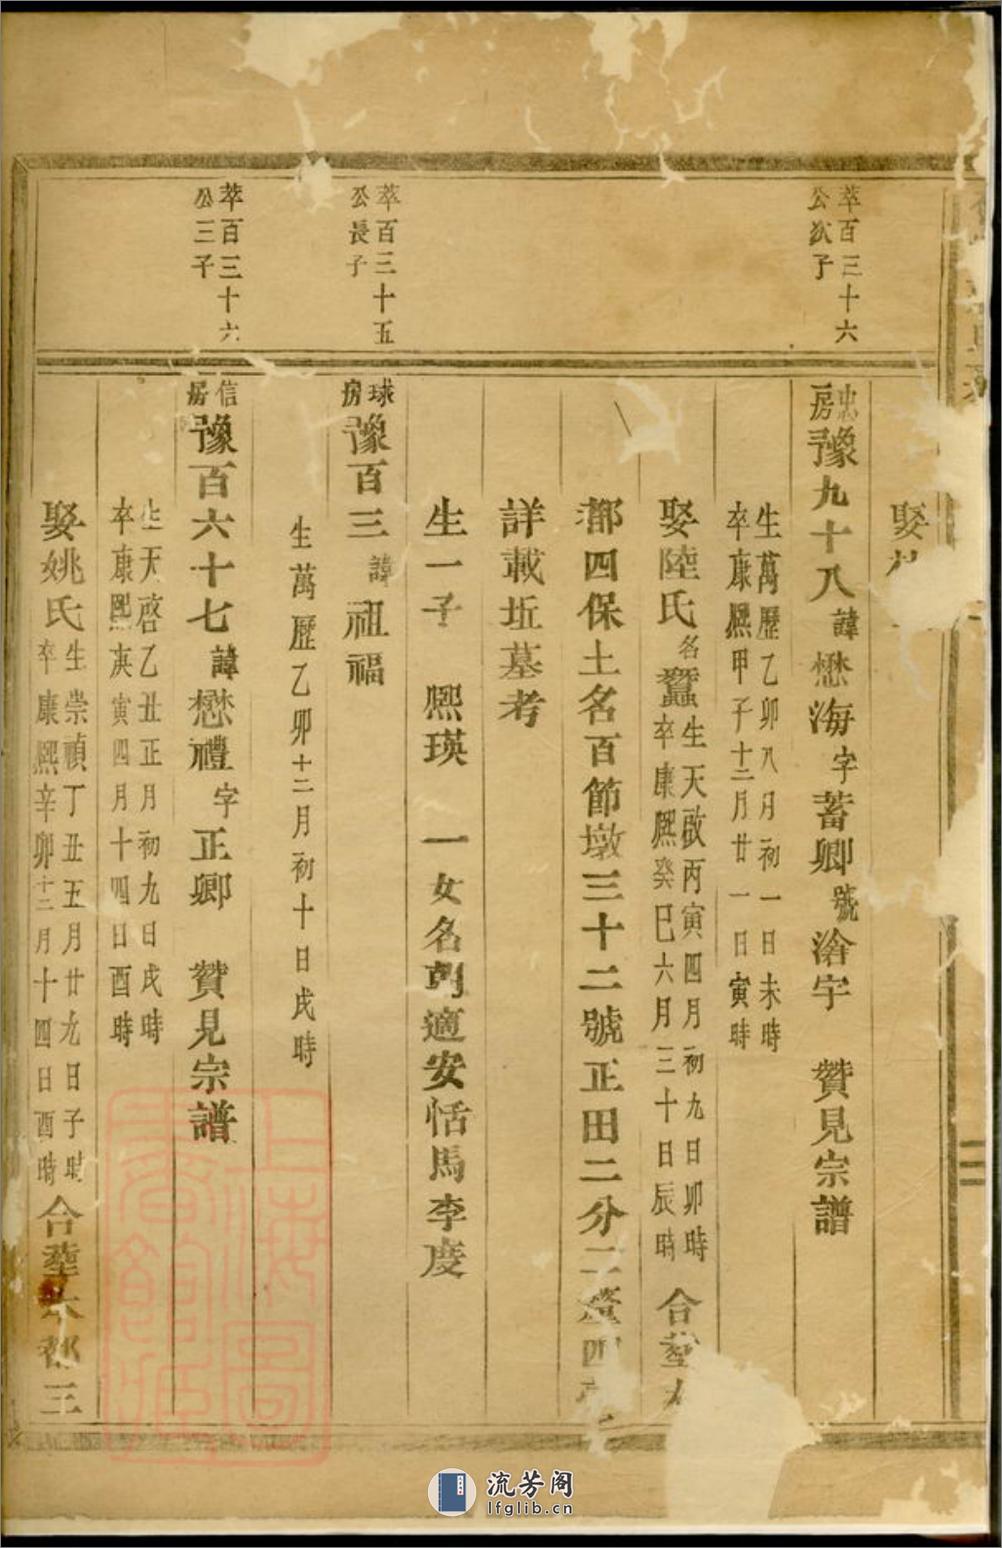 娶
萃百三十六
公次子
忠房
豫九十八諱懋海字蓄卿號淦宇 贊見宗譜
生萬歷乙卯八月初一日未時
卒康熙甲子十二月廿一日寅時
娶陸氏名蠶
生天啟丙寅四月初九日卯時
卒康熙癸巳六月三十日辰時
合塟
都四保土名百節墩三十二號正田二分二釐四
詳載坵墓考
生一子 熙瑛 一女名朝適安恬馬李慶
萃百三十五
公長子
球房
豫百三諱祖福
生萬歷乙卯十二月初十日戌時
萃百三十六
公三子
信房
豫百六十七諱懋禮字正卿 贊見宗譜
生天啓乙丑正月初九日戌時
卒康熙庚寅四月十四日酉時
娶姚氏
生崇禎丁丑五月廿九日子時
卒康熙辛卯十二月十四日酉時
合塟六都三
上海圖書館藏
流芳阁
lfglib.cn